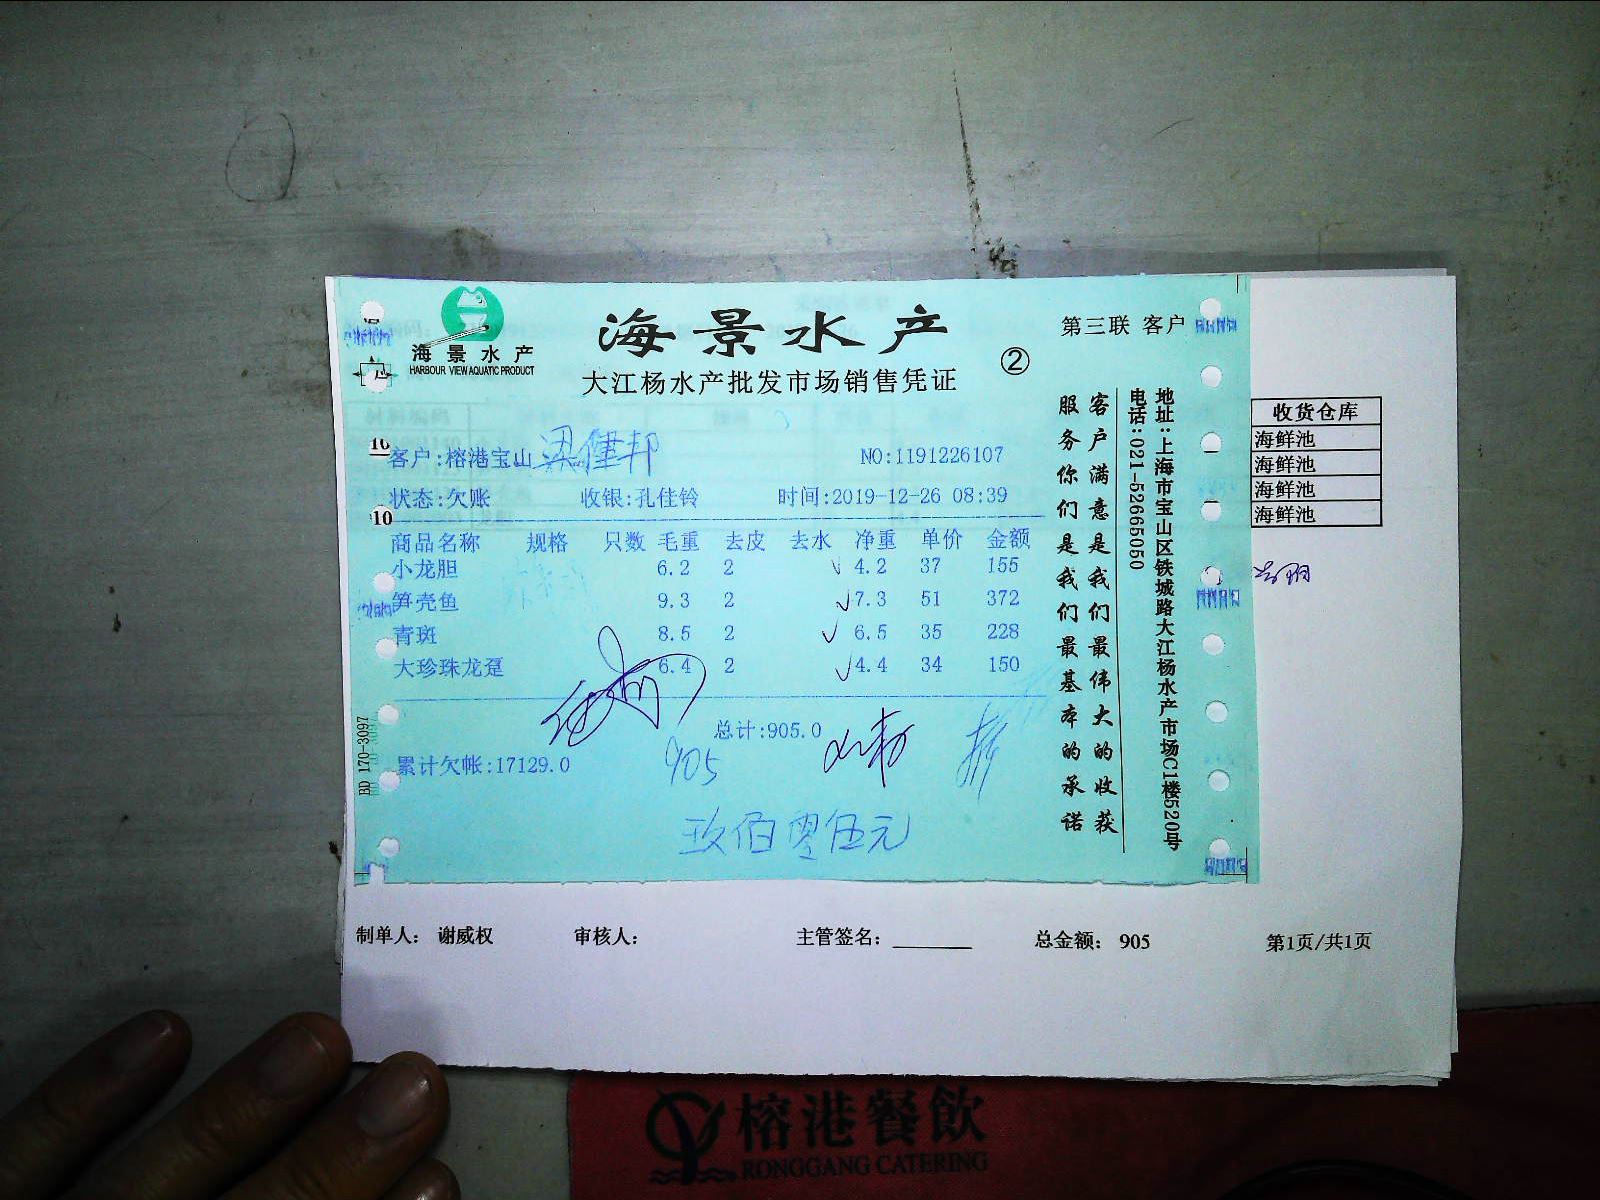 海景水产
HARBOUR VIEW AQUATIC PRODUCT
海景水产
大江杨水产批发市场销售凭证
②
第三联 客户
客户:榕港宝山 梁健邦
NO:1191226107
状态:欠账 收银:孔佳铃 时间:2019-12-26 08:39
商品名称 规格 只数 毛重 去皮 去水 净重 单价 金额
小龙胆 6.2 2 4.2 37 155
笋壳鱼 9.3 2 7.3 51 372
青斑 8.5 2 6.5 35 228
大珍珠龙趸 6.4 2 4.4 34 150
总计:905.0
累计欠帐:17129.0
905
玖佰零伍元
客户满意是我们最伟大的收获
服务你们是我们最基本的承诺
地址:上海市宝山区铁城路大江杨水产市场C1楼520号
电话:021-52665050
BD 170-3097
10
10
收货仓库
海鲜池
海鲜池
海鲜池
海鲜池
制单人: 谢威权 审核人: 主管签名: 总金额: 905 第1页/共1页
榕港餐飲
RONGGANG CATERING